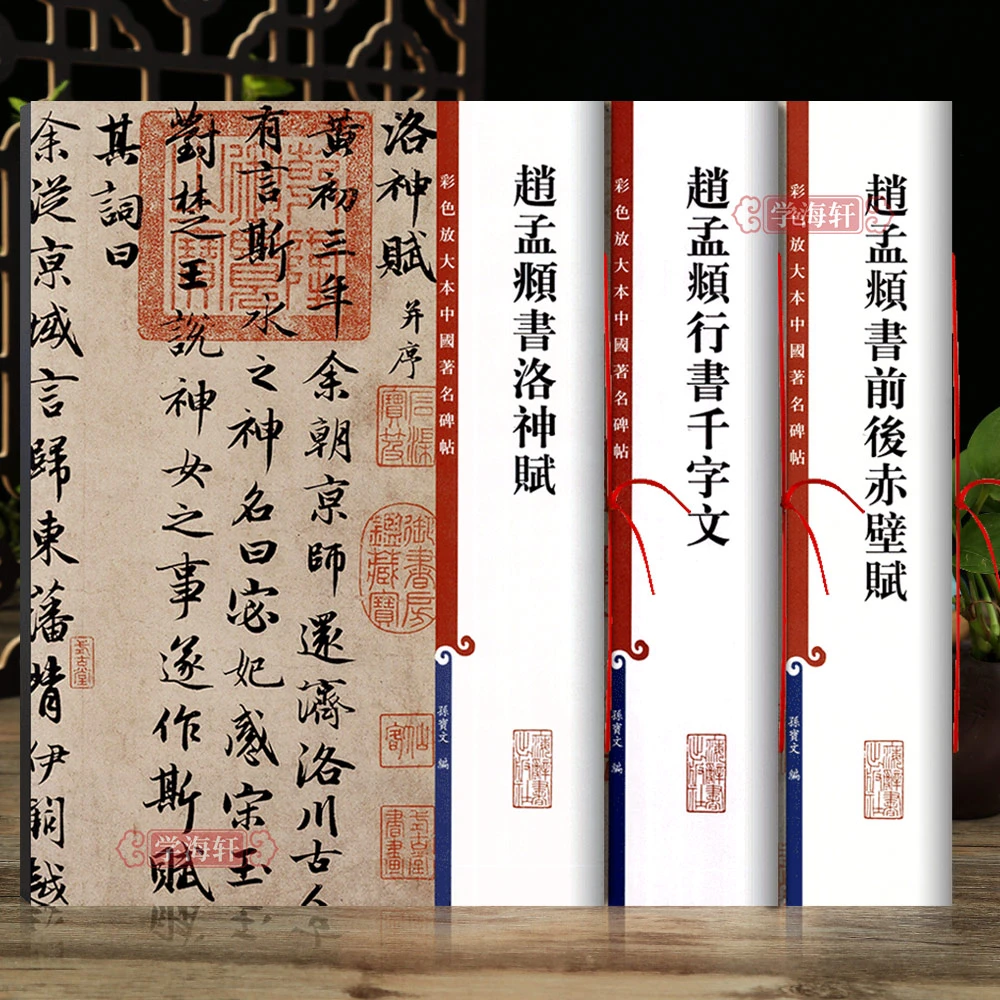 洛神賦 并序
黃初三年余朝京師還濟洛川古人
有言斯水之神名曰宓妃感宋玉
對楚王說神女之事遂作斯賦
其詞曰
余從京域言歸東藩背伊闕越
石渠寶笈
御書房鑑藏寶
学海轩
彩色放大本中國著名碑帖
趙孟頫書洛神賦
孫寶文 編
彩色放大本中國著名碑帖
趙孟頫行書千字文
孫寶文 編
彩色放大本中國著名碑帖
趙孟頫書前後赤壁賦
孫寶文 編
学海轩